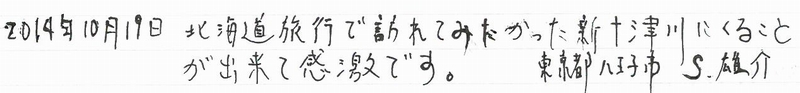 2014年10月19日 北海道旅行で訪れてみたかった新十津川にくること
が出来て感激です。 東京都八王子市 S.雄介